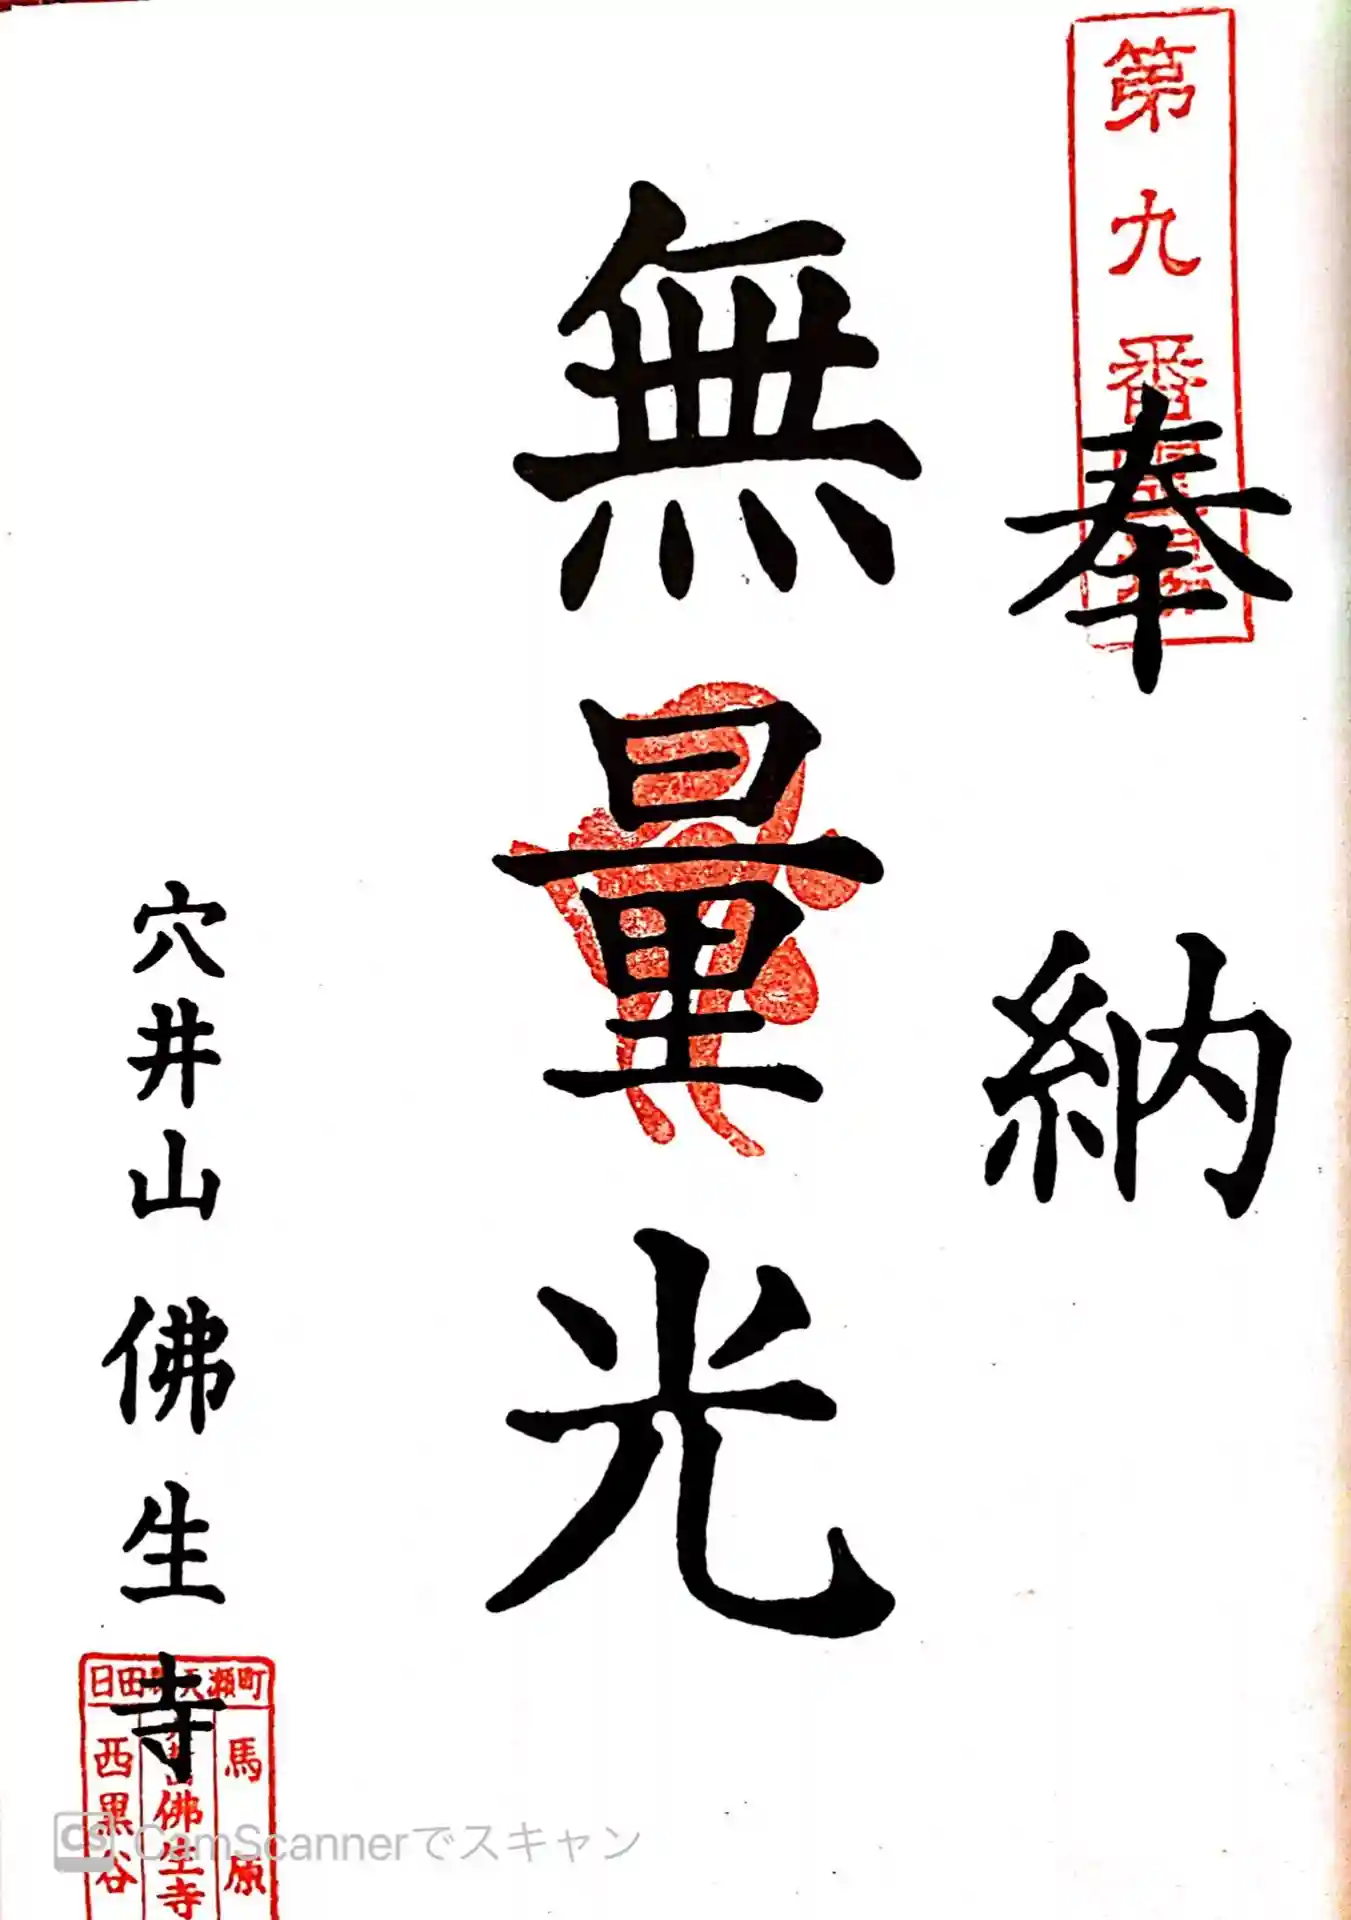 第九番霊場
奉納
無量光
穴井山 佛生寺
日田郡天瀬町
馬原
佛生寺
西黒谷
CS CamScannerでスキャン